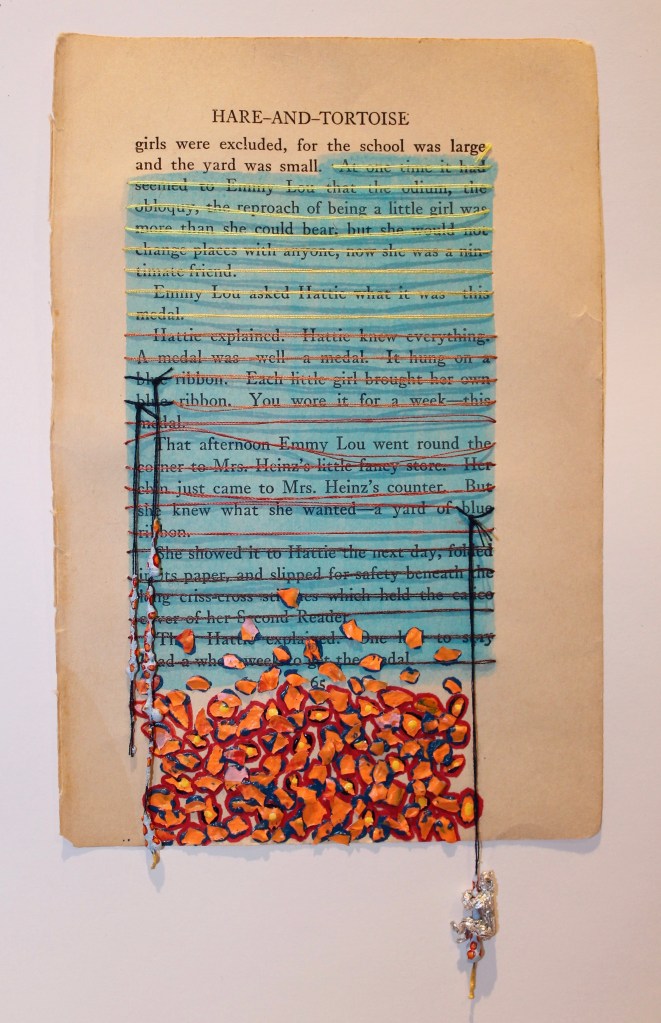 HARE–AND–TORTOISE
girls were excluded, for the school was large
and the yard was small. At one time it had
seemed to Emmy Lou that the odium, the
obloquy, the reproach of being a little girl was
more than she could bear, but she would not
change places with anyone, now she was a
timate friend.
Emmy Lou asked Hattie what it was this
medal.
Hattie explained. Hattie knew everything.
A medal was—well—a medal. It hung on a
blue ribbon. Each little girl brought her own
blue ribbon. You wore it for a week—this
medal.
That afternoon Emmy Lou went round the
corner to Mrs. Heinz's little fancy store. Her
chin just came to Mrs. Heinz's counter. But
she knew what she wanted—a yard of blue
ribbon.
She showed it to Hattie the next day, folded
in its paper, and slipped for safety beneath the
long criss-cross which held the calico
cover of her Second Reader.
Hattie explained. One had to stay
a whole week to get the medal.
65